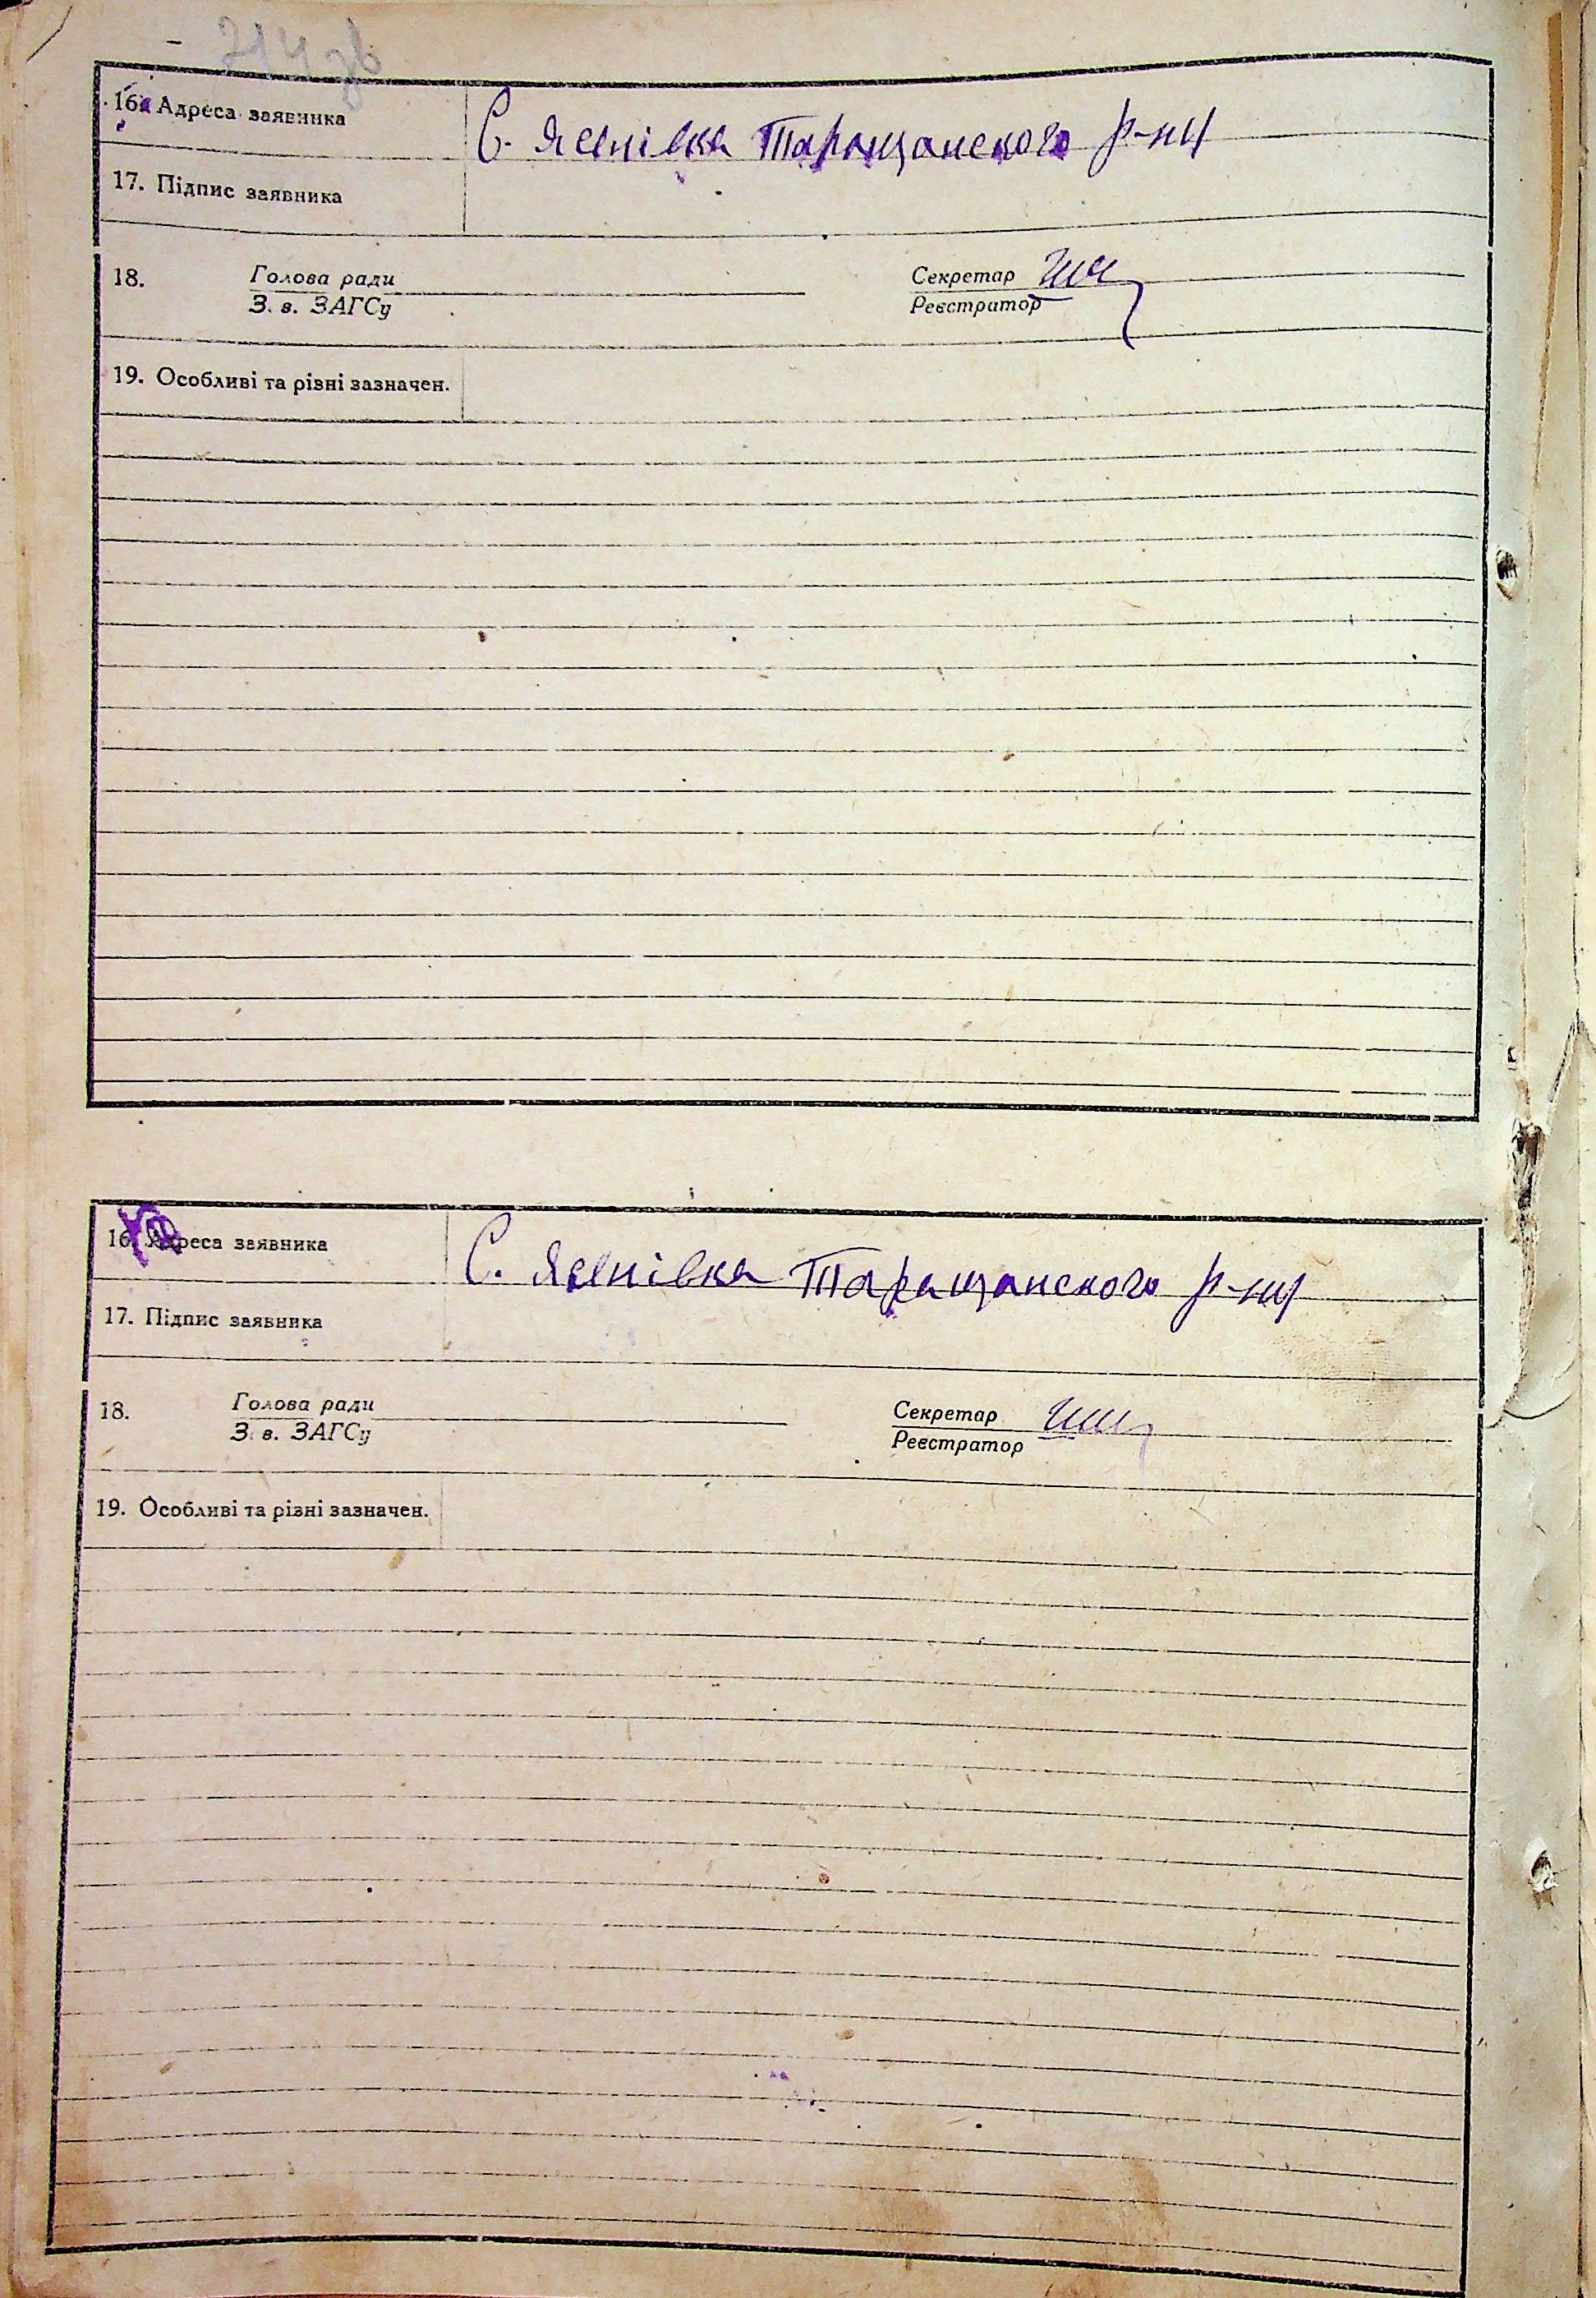 214 зв
16. Адреса заявника С. Яснівка Таращанского р-ну
17. Підпис заявника
18. Голова ради Секретар
З. в. ЗАГСу Реєстратор
19. Особливі та різні зазначен.
16. Адреса заявника С. Яснівка Таращанского р-ну
17. Підпис заявника
18. Голова ради Секретар
З. в. ЗАГСу Реєстратор
19. Особливі та різні зазначен.